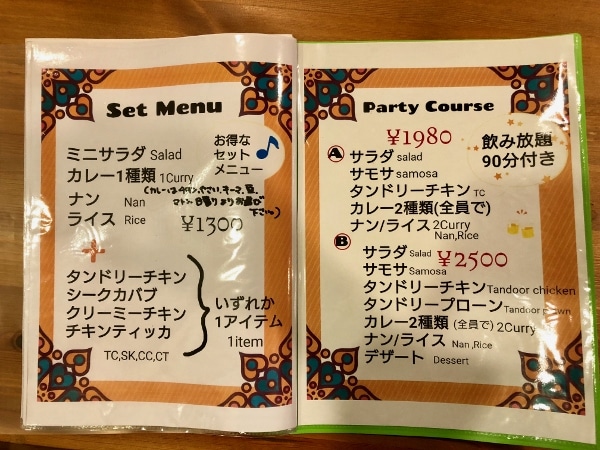 Set Menu
お得な
セット
メニュー
ミニサラダ Salad
カレー1種類 1Curry
(カレーはチキン、やさい、キーマ、豆、
マトン 日替りよりお選び
下さい。)
ナン Nan
ライス Rice ¥1300
+
タンドリーチキン
シークカバブ
クリーミーチキン
チキンティッカ
TC,SK,CC,CT
いずれか
1アイテム
1item
Party Course
¥1980
飲み放題
90分付き
A
サラダ salad
サモサ samosa
タンドリーチキン TC
カレー2種類(全員で)
ナン/ライス 2Curry
Nan,Rice
B
サラダ Salad ¥2500
サモサ Samosa
タンドリーチキン Tandoor chicken
タンドリープローン Tandoor prawn
カレー2種類 (全員で) 2Curry
ナン/ライス Nan,Rice
デザート Dessert